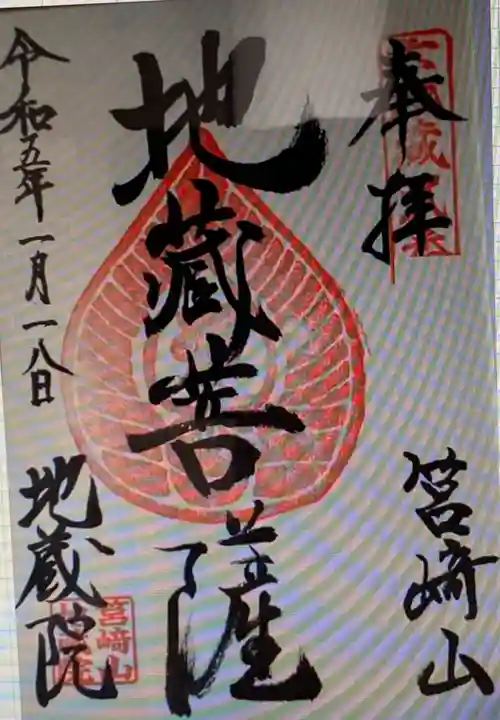 奉拝
筥崎山
地蔵菩薩
令和五年一月一八日
地蔵院
筥崎山